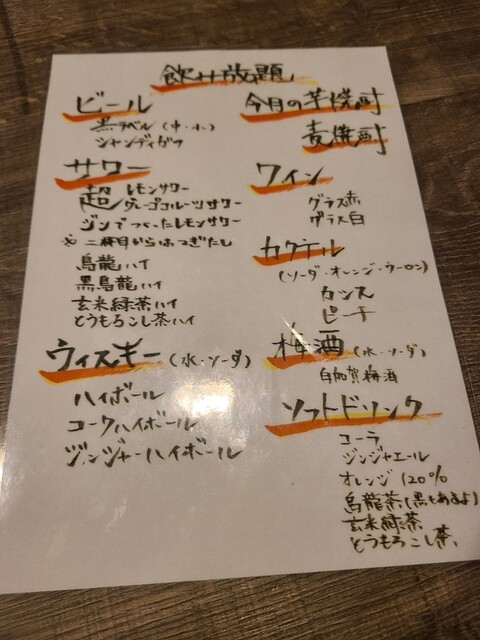 飲み放題
ビール
黒ラベル(中・小)
シャンディガフ
サワー
超レモンサワー
超グレープフルーツサワー
ジンでつくったレモンサワー
※二杯目からはつぎたし
烏龍ハイ
黒烏龍ハイ
玄米緑茶ハイ
とうもろこし茶ハイ
ウィスキー(水・ソーダ)
ハイボール
コークハイボール
ジンジャーハイボール
今月の芋焼酎
麦焼酎
ワイン
グラス赤
グラス白
カクテル
(ソーダ・オレンジ・ウーロン)
カシス
ピーチ
梅酒(水・ソーダ)
白加賀梅酒
ソフトドリンク
コーラ
ジンジャエール
オレンジ120%
烏龍茶(黒もあるよ)
玄米緑茶
とうもろこし茶、